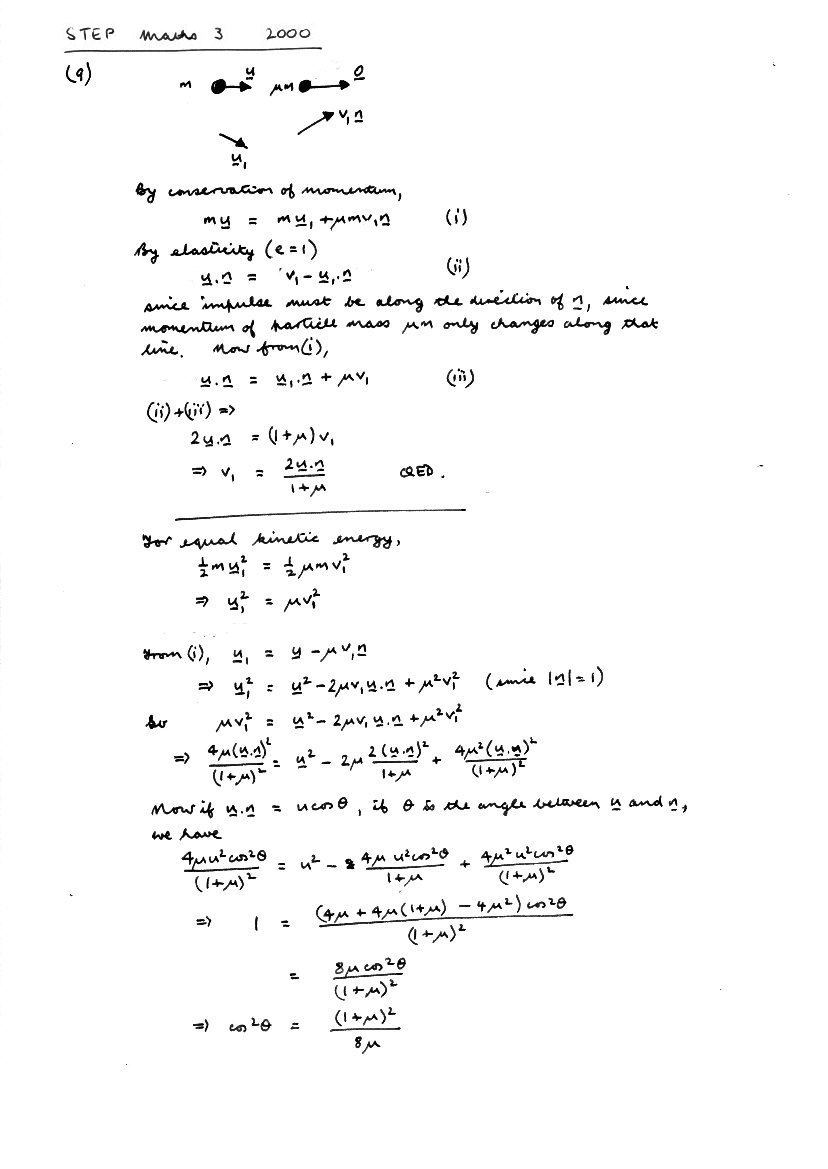 STEP Maths 3 2000
(9)
m u μm 0
v₁n
u₁
By conservation of momentum,
mu = mu₁ + μmv₁n (i)
By elasticity (e=1)
u.n = v₁ - u₁.n (ii)
since impulse must be along the direction of n, since
momentum of particle mass μm only changes along that
line. Now from (i),
u.n = u₁.n + μv₁ (iii)
(ii)+(iii) =>
2u.n = (1+μ)v₁
=> v₁ = 2u.n / (1+μ) QED.
For equal kinetic energy,
½mu₁² = ½μmv₁²
=> u₁² = μv₁²
From (i), u₁ = u - μv₁n
=> u₁² = u² - 2μv₁u.n + μ²v₁² (since |n|=1)
So μv₁² = u² - 2μv₁u.n + μ²v₁²
=> 4μ(u.n)²/(1+μ)² = u² - 2μ 2(u.n)²/(1+μ) + 4μ²(u.n)²/(1+μ)²
Now if u.n = u cosθ, if θ is the angle between u and n,
we have
4μu²cos²θ/(1+μ)² = u² - 4μu²cos²θ/(1+μ) + 4μ²u²cos²θ/(1+μ)²
=> 1 = (4μ + 4μ(1+μ) - 4μ²)cos²θ/(1+μ)²
= 8μcos²θ/(1+μ)²
=> cos²θ = (1+μ)²/8μ